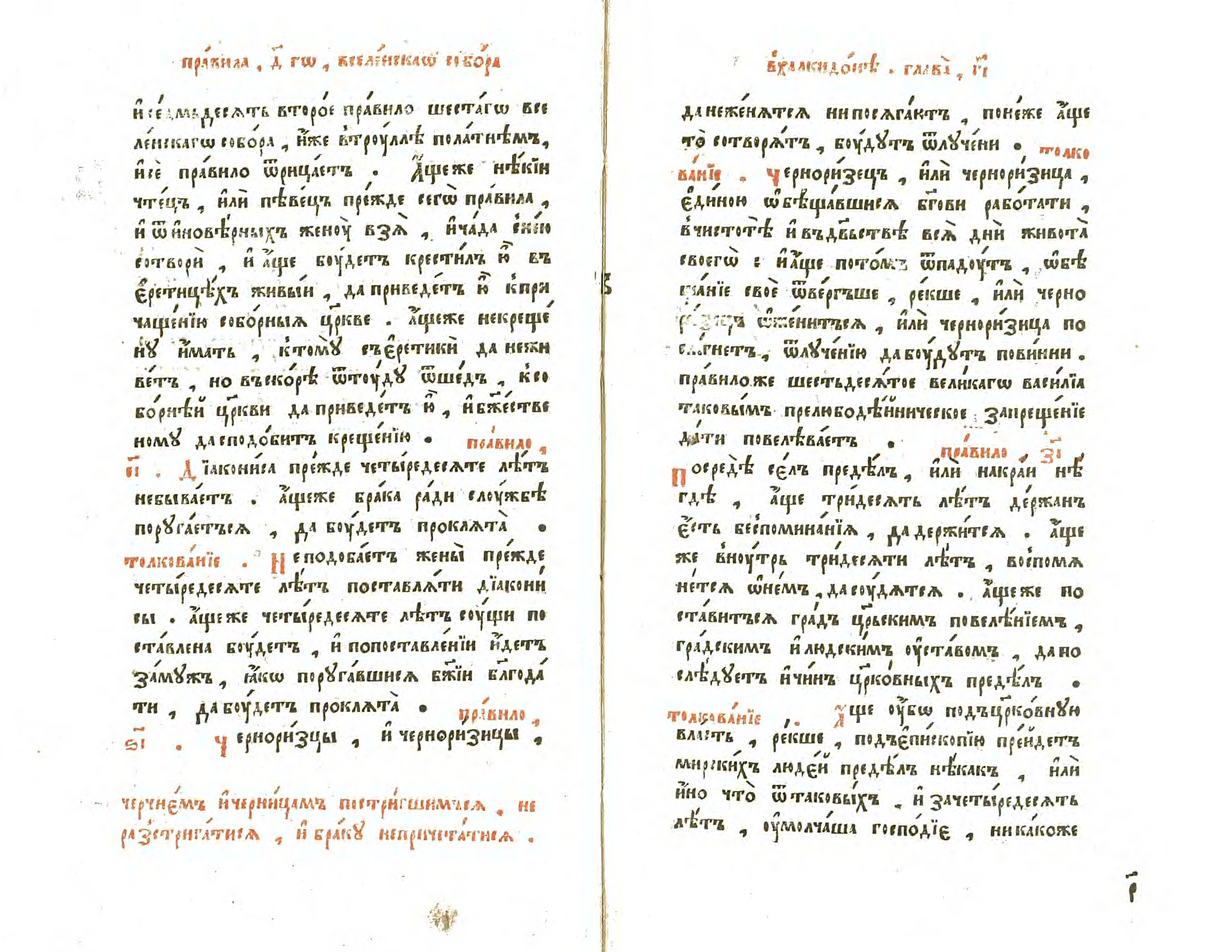 пра́вила , д҃ гѡ , вселе́нскаѡ собо́ра
и҆ се́дмьдесять второ́е пра́вило шеста́гѡ все
ле́нскагѡ собо́ра , и҆́же втроу́ллѣ пола́тнѣмъ,
и҆ сѐ пра́вило ѿрица́етъ . А҆́щеже нѣ́кїи
чте́цъ , и҆лѝ пѣве́цъ пре́жде сегѡ̀ пра́вила ,
и҆ ѿ и҆новѣ́рныхъ женоу̀ взѧ̀ , и҆ча́да с̾не́ю
сотворѝ , и҆ а҆́ще боу́детъ крести́лъ ю҆̀ въ
є҆ретицѣ́хъ живы́и , да приведе́тъ ю҆̀ кпри
чаще́нїю собо́рныѧ цр҃кве . а҆́щеже некреще́
нꙋ и҆́мать , ктомꙋ̀ съє҆ретикѝ да нежи
ве́тъ , но въско́рѣ ѿтоу́дꙋ ѿше́дъ , ксо
бо́рнѣй цр҃кви да приведе́тъ ю҆̀ , и҆ бж҃естве
номꙋ да сподо́битъ креще́нїю .
пра́вило ,
є҃і . Дїакони́са пре́жде четы́редесѧте лѣ́тъ
небыва́етъ . а҆́щеже бра́ка ра́ди слоу́жбѣ
порꙋга́етъсѧ , да боу́детъ проклѧта̀ .
толкова́нїе . Не подоба́етъ жены̀ пре́жде
четы́редесѧте лѣ́тъ поставлѧ́ти дїакони́
сы . а҆́щеже четы́редесѧте лѣ́тъ соу́щи по
ста́влена боу́детъ , и҆ попоставле́нїи и҆́детъ
за́мꙋжъ , ꙗ҆́кѡ порꙋга́вшисѧ бж҃їи бл҃года́
ти , да боу́детъ проклѧта̀ .
пра́вило ,
ѕ҃і . Чернори́зцы , и҆ черноризи́цы ,
черчнє́мъ и҆черни́цамъ постри́гшимъсѧ , не
разстрига́тисѧ , и҆ бра́кꙋ неприч\u0435та́тисѧ .
вхалкидо́нѣ . глава̀ , г҃і
да неже́нѧтсѧ ни посѧга́ютъ , поне́же а҆́ще
то̀ сотворѧ́тъ , боу́дꙋтъ ѿлꙋче́ни . толко
ва́нїе . Черноризе́цъ , и҆лѝ чернори́зица ,
є҆ди́ною ѡ҆бѣща́вшисѧ бг҃ови рабо́тати ,
вчистотѣ̀ и҆ въдв҃ьствѣ всѧ̀ дни̑ живота̀
своегѡ̀ : и҆ а҆́ще пото́мъ ѿпадоу́тъ , ѡ҆бѣ
ща́нїе своѐ ѿве́ргъше , ре́кше , и҆лѝ черно
ри́зецъ ѡ҆же́нитъсѧ , и҆лѝ чернори́зица по
сѧ́гнетъ , ѿлꙋче́нїю да боу́дꙋтъ пови́нни .
пра́виложе шестьдесѧ́тое вели́кагѡ васи́лїа
таковы́мъ прелюбодѣ́йническое запреще́нїе
да́ти повелѣва́етъ .
пра́вило , з҃і
Посредѣ̀ се́лъ предѣ́лъ , и҆лѝ накра́и нѣ́
гдѣ , а҆́ще три́десѧть лѣ́тъ де́ржанъ
є҆́сть беспомина́нїѧ , да держи́тсѧ . а҆́ще
же вноу́трь три́десѧти лѣ́тъ , воспомѧ
не́тсѧ ѡ҆не́мъ , да соу́дѧтсѧ . а҆́щеже по
ста́витьсѧ гра́дъ цр҃ьскимъ повелѣ́нїемъ ,
гра́дскимъ и҆ людски́мъ оу҆ста́вомъ , да по
слѣ́дꙋетъ и҆ чи́нъ цр҃ко́вныхъ предѣ́лъ .
толкова́нїе . А҆́ще оу҆́бѡ подъцр҃ко́внꙋю
вла́сть , ре́кше , подъє҆пископі́ю пре́йдетъ
мирски́хъ люде́й предѣ́лъ нѣ́какъ , и҆лѝ
и҆́но что̀ ѿ таковы́хъ , и҆ зачеты́редесѧть
лѣ́тъ , оу҆молча́ша госпо́дїе , ника́коже
р҃